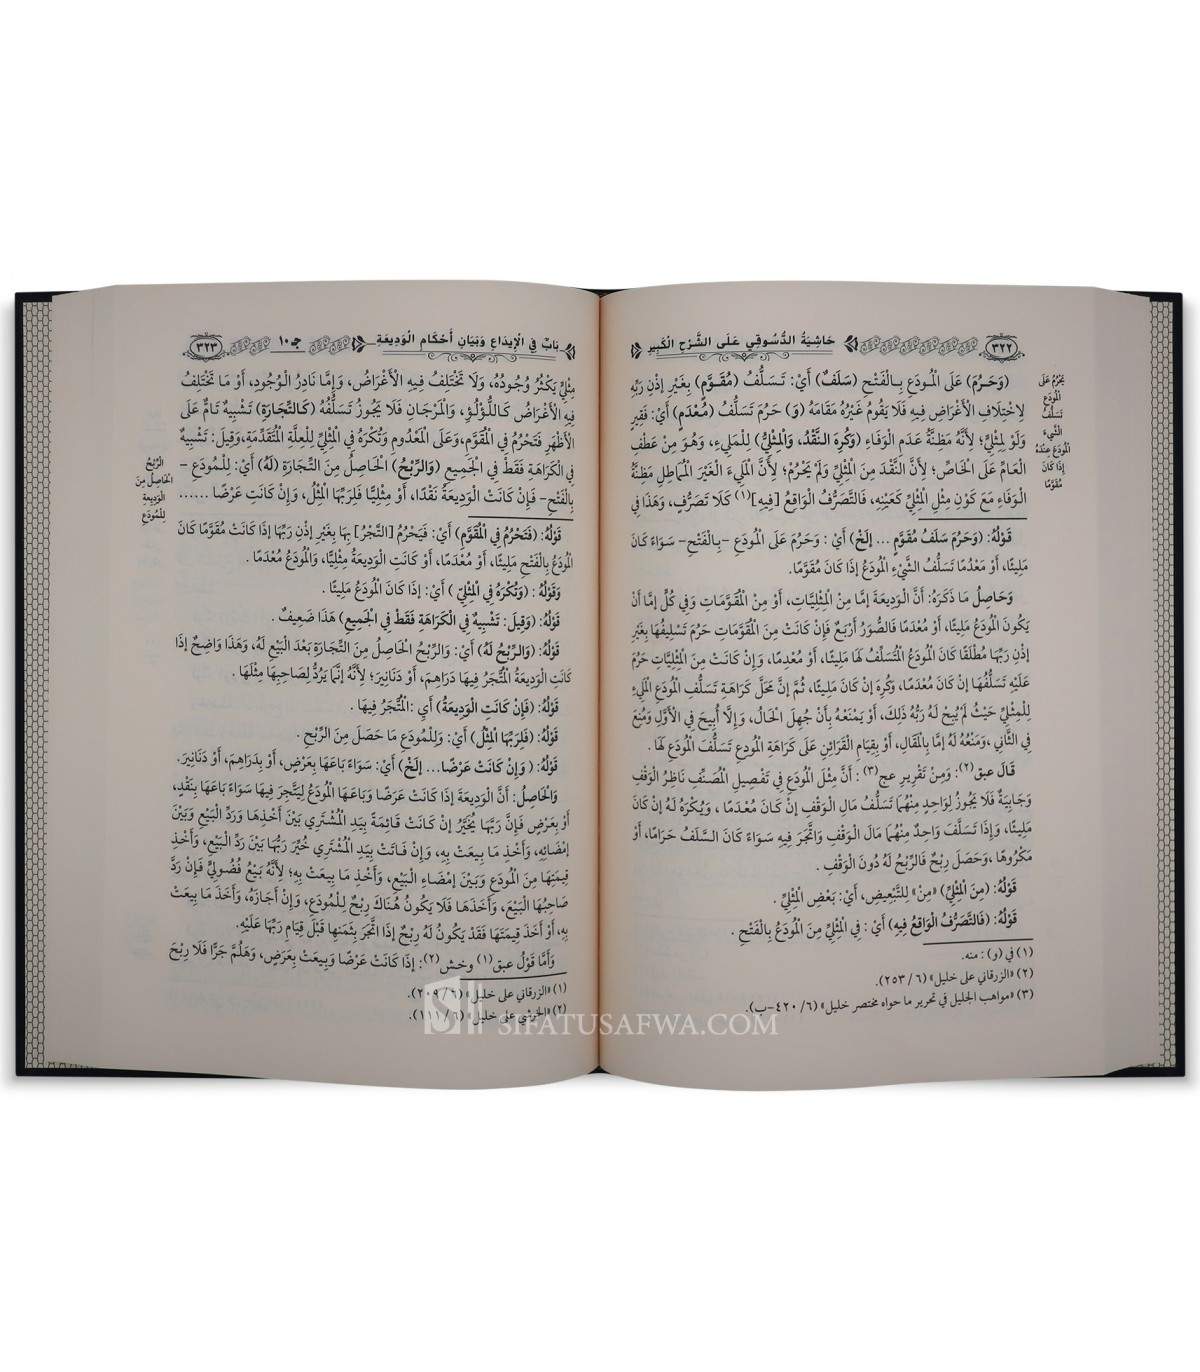 ٣٢٢
حَاشِيَةُ الدُّسُوقِي عَلَى الشَّرْحِ الْكَبِيرِ
يَحْرُمُ عَلَى
الْمُودَعِ
تَسَلُّفُ
الشَّيْءِ
الْمُودَعِ عِنْدَهُ
إِذَا كَانَ
مُقَوَّمًا
(وَحَرُمَ) عَلَى الْمُودَعِ بِالْفَتْحِ (سَلَفٌ) أَيْ: تَسَلُّفُ (مُقَوَّمٍ) بِغَيْرِ إِذْنِ رَبِّهِ
لِاخْتِلَافِ الْأَغْرَاضِ فِيهِ فَلَا يَقُومُ غَيْرُهُ مَقَامَهُ (وَ) حَرُمَ تَسَلُّفُ (مُعْدَمٍ) أَيْ: فَقِيرٍ
وَلَوْ لِمِثْلِيٍّ؛ لِأَنَّهُ مَظِنَّةُ عَدَمِ الْوَفَاءِ (وَكُرِهَ النَّقْدُ، وَالْمِثْلِيُّ) لِلْمَلِيءِ، وَهُوَ مِنْ عَطْفِ
الْعَامِّ عَلَى الْخَاصِّ؛ لِأَنَّ النَّقْدَ مِنَ الْمِثْلِيِّ وَلَمْ يَحْرُمْ؛ لِأَنَّ الْمَلِيءَ الْغَيْرَ الْمُمَاطِلِ مَظِنَّةُ
الْوَفَاءِ مَعَ كَوْنِ مِثْلِ الْمِثْلِيِّ كَعَيْنِهِ، فَالتَّصَرُّفُ الْوَاقِعُ [فِيهِ](١) كَلَا تَصَرُّفٍ، وَهَذَا فِي
قَوْلُهُ: (وَحَرُمَ سَلَفُ مُقَوَّمٍ ... إلَخْ) أَيْ: وَحَرُمَ عَلَى الْمُودَعِ -بِالْفَتْحِ- سَوَاءً كَانَ
مَلِيئًا، أَوْ مَعْدُمًا تَسَلُّفُ الشَّيْءِ الْمُودَعِ إِذَا كَانَ مُقَوَّمًا.
وَحَاصِلُ مَا ذَكَرَهُ: أَنَّ الْوَدِيعَةَ إِمَّا مِنَ الْمِثْلِيَّاتِ، أَوْ مِنَ الْمُقَوَّمَاتِ وَفِي كُلٍّ إِمَّا أَنْ
يَكُونَ الْمُودَعُ مَلِيئًا، أَوْ مُعْدَمًا فَالصُّوَرُ أَرْبَعٌ فَإِنْ كَانَتْ مِنَ الْمُقَوَّمَاتِ حَرُمَ تَسْلِيفُهَا بِغَيْرِ
إِذْنِ رَبِّهَا مُطْلَقًا كَانَ الْمُودَعُ الْمُتَسَلِّفُ لَهَا مَلِيئًا، أَوْ مُعْدِمًا، وَإِنْ كَانَتْ مِنَ الْمِثْلِيَّاتِ حَرُمَ
عَلَيْهِ تَسَلُّفُهَا إِنْ كَانَ مُعْدَمًا، وَكُرِهَ إِنْ كَانَ مَلِيئًا، ثُمَّ إِنَّ مَحَلَّ كَرَاهَةِ تَسَلُّفِ الْمُودَعِ الْمَلِيءِ
لِلْمِثْلِيِّ حَيْثُ لَمْ يُبِحْ لَهُ رَبُّهُ ذَلِكَ، أَوْ يَمْنَعْهُ بِأَنْ جُهِلَ الْحَالُ، وَإِلَّا أُبِيحَ فِي الْأَوَّلِ وَمُنِعَ
فِي الثَّانِي، وَمَنْعُهُ لَهُ إِمَّا بِالْمَقَالِ، أَوْ بِقِيَامِ الْقَرَائِنِ عَلَى كَرَاهَةِ الْمُودِعِ تَسَلُّفَ الْمُودَعِ لَهَا.
قَالَ عبق(٢): وَمِنْ تَقْرِيرِ عج(٣): أَنَّ مِثْلَ الْمُودَعِ فِي تَفْصِيلِ الْمُصَنِّفِ نَاظِرُ الْوَقْفِ
وَجَابِيَهُ فَلَا يَجُوزُ لِوَاحِدٍ مِنْهُمَا تَسَلُّفُ مَالِ الْوَقْفِ إِنْ كَانَ مُعْدَمًا، وَيُكْرَهُ لَهُ إِنْ كَانَ
مَلِيئًا، وَإِذَا تَسَلَّفَ وَاحِدٌ مِنْهُمَا مَالَ الْوَقْفِ وَاتَّجَرَ فِيهِ سَوَاءً كَانَ السَّلَفُ حَرَامًا، أَوْ
مَكْرُوهًا، وَحَصَلَ رِبْحٌ فَالرِّبْحُ لَهُ دُونَ الْوَقْفِ.
قَوْلُهُ: (مِنَ الْمِثْلِيِّ) «مِنْ» لِلتَّبْعِيضِ، أَيْ: بَعْضِ الْمِثْلِيِّ.
قَوْلُهُ: (فَالتَّصَرُّفُ الْوَاقِعُ فِيهِ) أَيْ: فِي الْمِثْلِيِّ مِنَ الْمُودَعِ بِالْفَتْحِ.
(١) في (و): منه.
(٢) «الزرقاني على خليل» (٦/ ٢٥٣).
(٣) «مواهب الجليل في تحرير ما حواه مختصر خليل» (٦/ ٤٢٠-ب).
بَابٌ فِي الْإِيدَاعِ وَبَيَانِ أَحْكَامِ الْوَدِيعَةِ
جـ١٠
٣٢٣
مِثْلِيٍّ يَكْثُرُ وُجُودُهُ، وَلَا تَخْتَلِفُ فِيهِ الْأَغْرَاضُ، وَإِمَّا نَادِرُ الْوُجُودِ، أَوْ مَا تَخْتَلِفُ
فِيهِ الْأَغْرَاضُ كَاللُّؤْلُؤِ، وَالْمَرْجَانِ فَلَا يَجُوزُ تَسَلُّفُهُ (كَالتِّجَارَةِ) تَشْبِيهٌ تَامٌّ عَلَى
الْأَظْهَرِ فَتَحْرُمُ فِي الْمُقَوَّمِ، وَعَلَى الْمَعْدُومِ وَتُكْرَهُ فِي الْمِثْلِيِّ لِلْعِلَّةِ الْمُتَقَدِّمَةِ، وَقِيلَ: تَشْبِيهٌ
فِي الْكَرَاهَةِ فَقَطْ فِي الْجَمِيعِ (وَالرِّبْحُ) الْحَاصِلُ مِنَ التِّجَارَةِ (لَهُ) أَيْ: لِلْمُودَعِ -
بِالْفَتْحِ- فَإِنْ كَانَتْ الْوَدِيعَةُ نَقْدًا، أَوْ مِثْلِيًّا فَلِرَبِّهَا الْمِثْلُ، وَإِنْ كَانَتْ عَرْضًا ......
الرِّبْحُ
الْحَاصِلُ مِنَ
الْوَدِيعَةِ
لِلْمُودَعِ
قَوْلُهُ: (فَتَحْرُمُ فِي الْمُقَوَّمِ) أَيْ: فَيَحْرُمُ [التَّجْرُ] بِهَا بِغَيْرِ إِذْنِ رَبِّهَا إِذَا كَانَتْ مُقَوَّمًا كَانَ
الْمُودَعُ بِالْفَتْحِ مَلِيئًا، أَوْ مُعْدَمًا، أَوْ كَانَتِ الْوَدِيعَةُ مِثْلِيًّا، وَالْمُودَعُ مُعْدَمًا.
وَقَوْلُهُ: (وَتُكْرَهُ فِي الْمِثْلِيِّ) أَيْ: إِذَا كَانَ الْمُودَعُ مَلِيئًا.
قَوْلُهُ: (وَقِيلَ: تَشْبِيهٌ فِي الْكَرَاهَةِ فَقَطْ فِي الْجَمِيعِ) هَذَا ضَعِيفٌ.
قَوْلُهُ: (وَالرِّبْحُ لَهُ) أَيْ: وَالرِّبْحُ الْحَاصِلُ مِنَ التِّجَارَةِ بَعْدَ الْبَيْعِ لَهُ، وَهَذَا وَاضِحٌ إِذَا
كَانَتِ الْوَدِيعَةُ الْمُتَّجَرُ فِيهَا دَرَاهِمَ، أَوْ دَنَانِيرَ؛ لِأَنَّهُ إِنَّمَا يَرُدُّ لِصَاحِبِهَا مِثْلَهَا.
قَوْلُهُ: (فَإِنْ كَانَتِ الْوَدِيعَةُ) أَيِ: الْمُتَّجَرُ فِيهَا.
قَوْلُهُ: (فَلِرَبِّهَا الْمِثْلُ) أَيْ: وَلِلْمُودَعِ مَا حَصَلَ مِنَ الرِّبْحِ.
قَوْلُهُ: (وَإِنْ كَانَتْ عَرْضًا... إِلَخْ) أَيْ: سَوَاءً بَاعَهَا بِعَرْضٍ، أَوْ بِدَرَاهِمَ، أَوْ دَنَانِيرَ.
وَالْحَاصِلُ: أَنَّ الْوَدِيعَةَ إِذَا كَانَتْ عَرْضًا وَبَاعَهَا الْمُودَعُ لِيَتَّجِرَ فِيهَا سَوَاءً بَاعَهَا بِنَقْدٍ،
أَوْ بِعَرْضٍ فَإِنَّ رَبَّهَا يُخَيَّرُ إِنْ كَانَتْ قَائِمَةً بِيَدِ الْمُشْتَرِي بَيْنَ أَخْذِهَا وَرَدِّ الْبَيْعِ وَبَيْنَ
إِمْضَائِهِ، وَأَخْذِ مَا بِيعَتْ بِهِ، وَإِنْ فَاتَتْ بِيَدِ الْمُشْتَرِي خُيِّرَ رَبُّهَا بَيْنَ رَدِّ الْبَيْعِ، وَأَخْذِ
قِيمَتِهَا مِنَ الْمُودَعِ وَبَيْنَ إِمْضَاءِ الْبَيْعِ، وَأَخْذِ مَا بِيعَتْ بِهِ؛ لِأَنَّهُ بَيْعُ فُضُولِيٍّ فَإِنْ رَدَّ
صَاحِبُهَا الْبَيْعَ، وَأَخَذَهَا فَلَا يَكُونُ هُنَاكَ رِبْحٌ لِلْمُودَعِ، وَإِنْ أَجَازَهُ، وَأَخَذَ مَا بِيعَتْ
بِهِ، أَوْ أَخَذَ قِيمَتَهَا فَقَدْ يَكُونُ لَهُ رِبْحٌ إِذَا اتَّجَرَ بِثَمَنِهَا قَبْلَ قِيَامِ رَبِّهَا عَلَيْهِ.
وَأَمَّا قَوْلُ عبق(١) وخش(٢): إِذَا كَانَتْ عَرْضًا وَبِيعَتْ بِعَرَضٍ، وَهَلُمَّ جَرًّا فَلَا رِبْحَ
(١) «الزرقاني على خليل» (٦/ ٢٠٩).
(٢) «الخرشي على خليل» (٦/ ١١١).
SIFATUSAFWA.COM